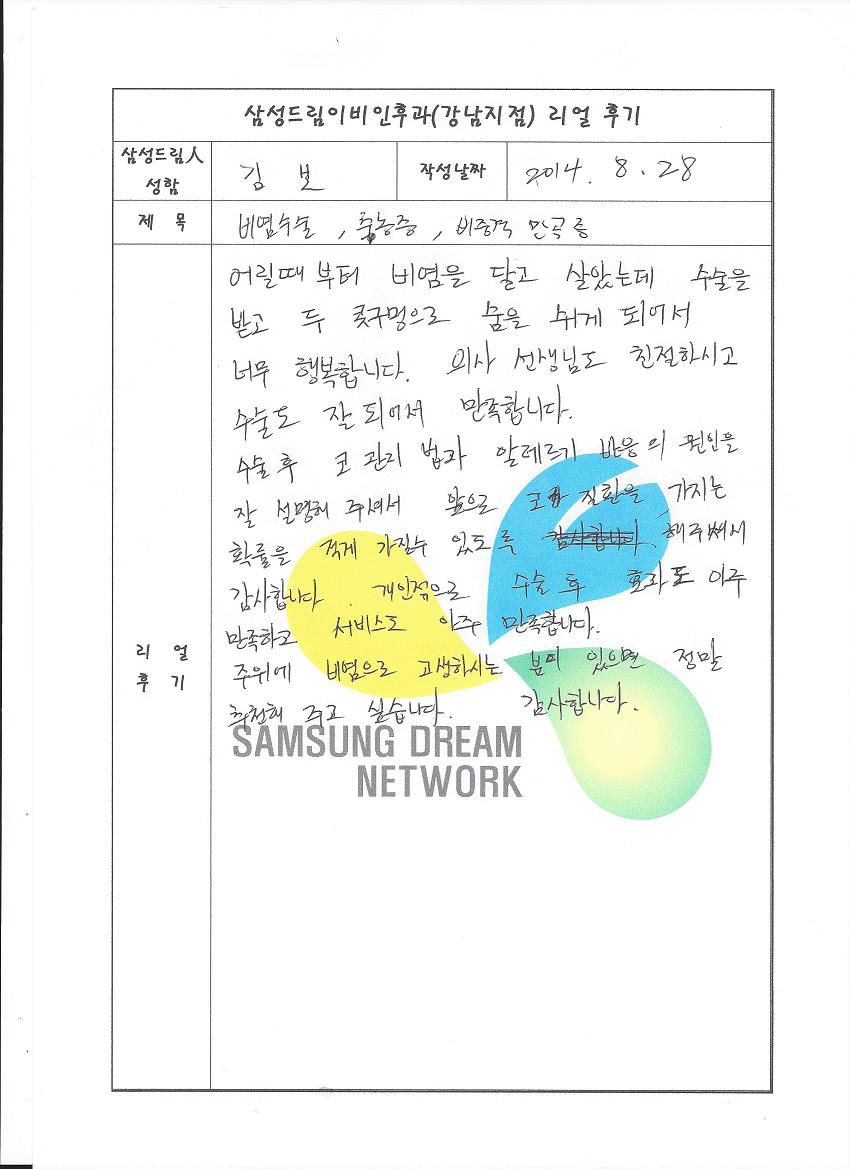 삼성드림이비인후과(강남지점) 리얼 후기
삼성드림人 성함
김 보
작성날짜
2014. 8. 28
제 목
비염수술, 축농증, 비중격 만곡증
리 얼 후 기
어릴때 부터 비염을 달고 살았는데 수술을
받고 두 콧구멍으로 숨을 쉬게 되어서
너무 행복합니다. 의사 선생님도 친절하시고
수술도 잘 되어서 만족합니다.
수술 후 코 관리 법과 알레르기 반응의 원인을
잘 설명해 주셔서 앞으로 코 질환을 가지는
확률을 적게 가질수 있도록 해주셔서
감사합니다. 개인적으로 수술 후 효과도 아주
만족하고 서비스도 아주 만족합니다.
주위에 비염으로 고생하시는 분이 있으면 정말
추천해 주고 싶습니다. 감사합니다.
SAMSUNG DREAM
NETWORK